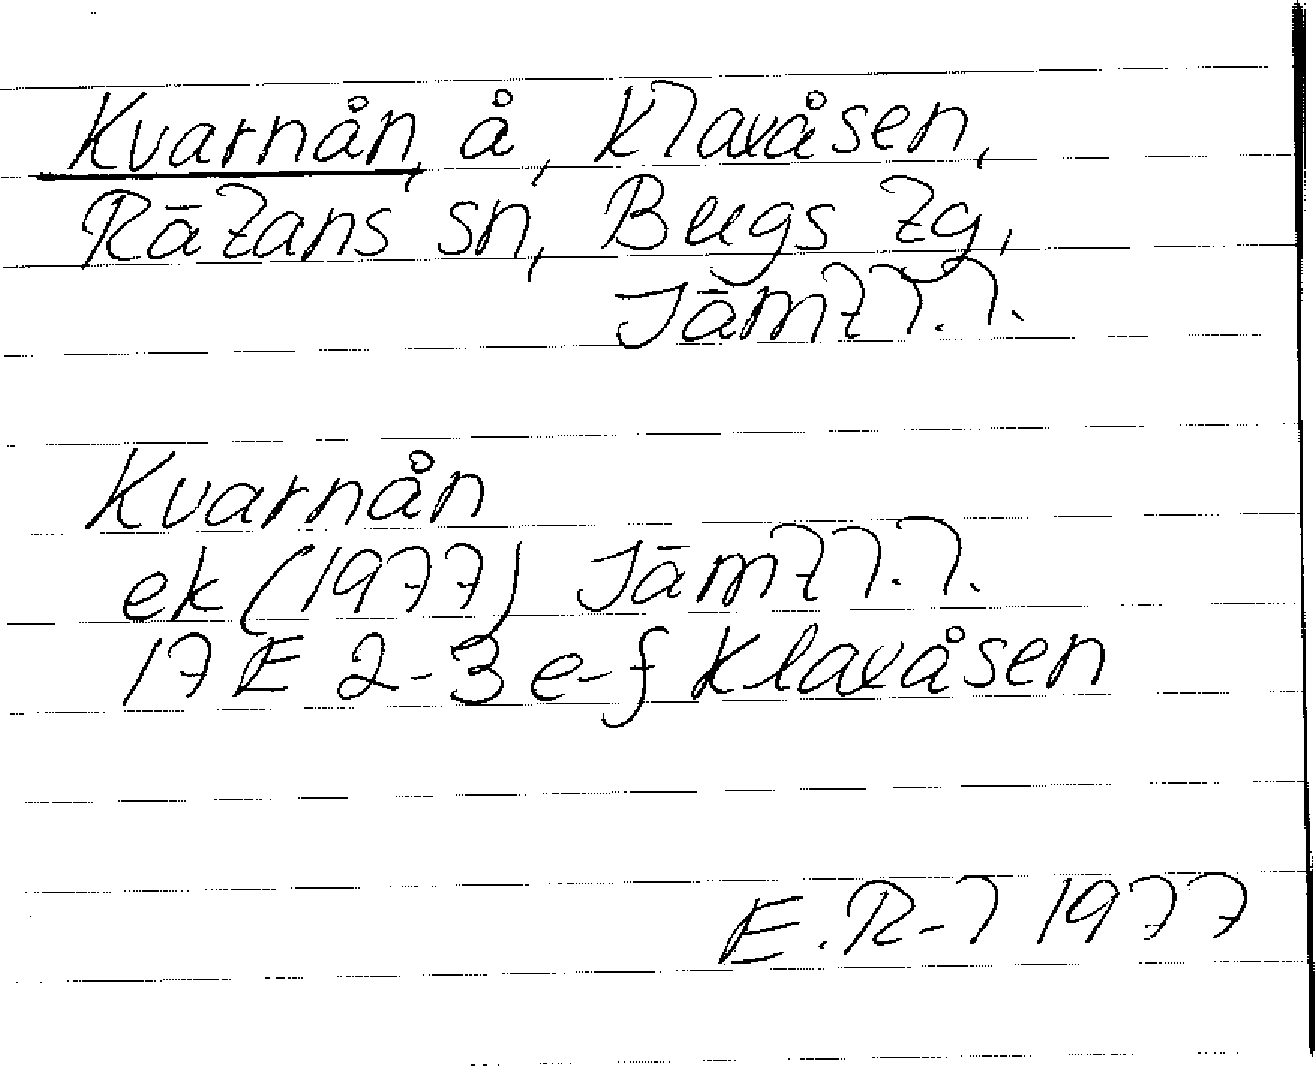 Kvarnån, å, Klaxåsen,
Rätans sn, Bergs tg,
Jämtl.l.
Kvarnån
ek (1977) Jämtl.l.
17 E 2-3 e-f Klaxåsen
E.R-l 1977